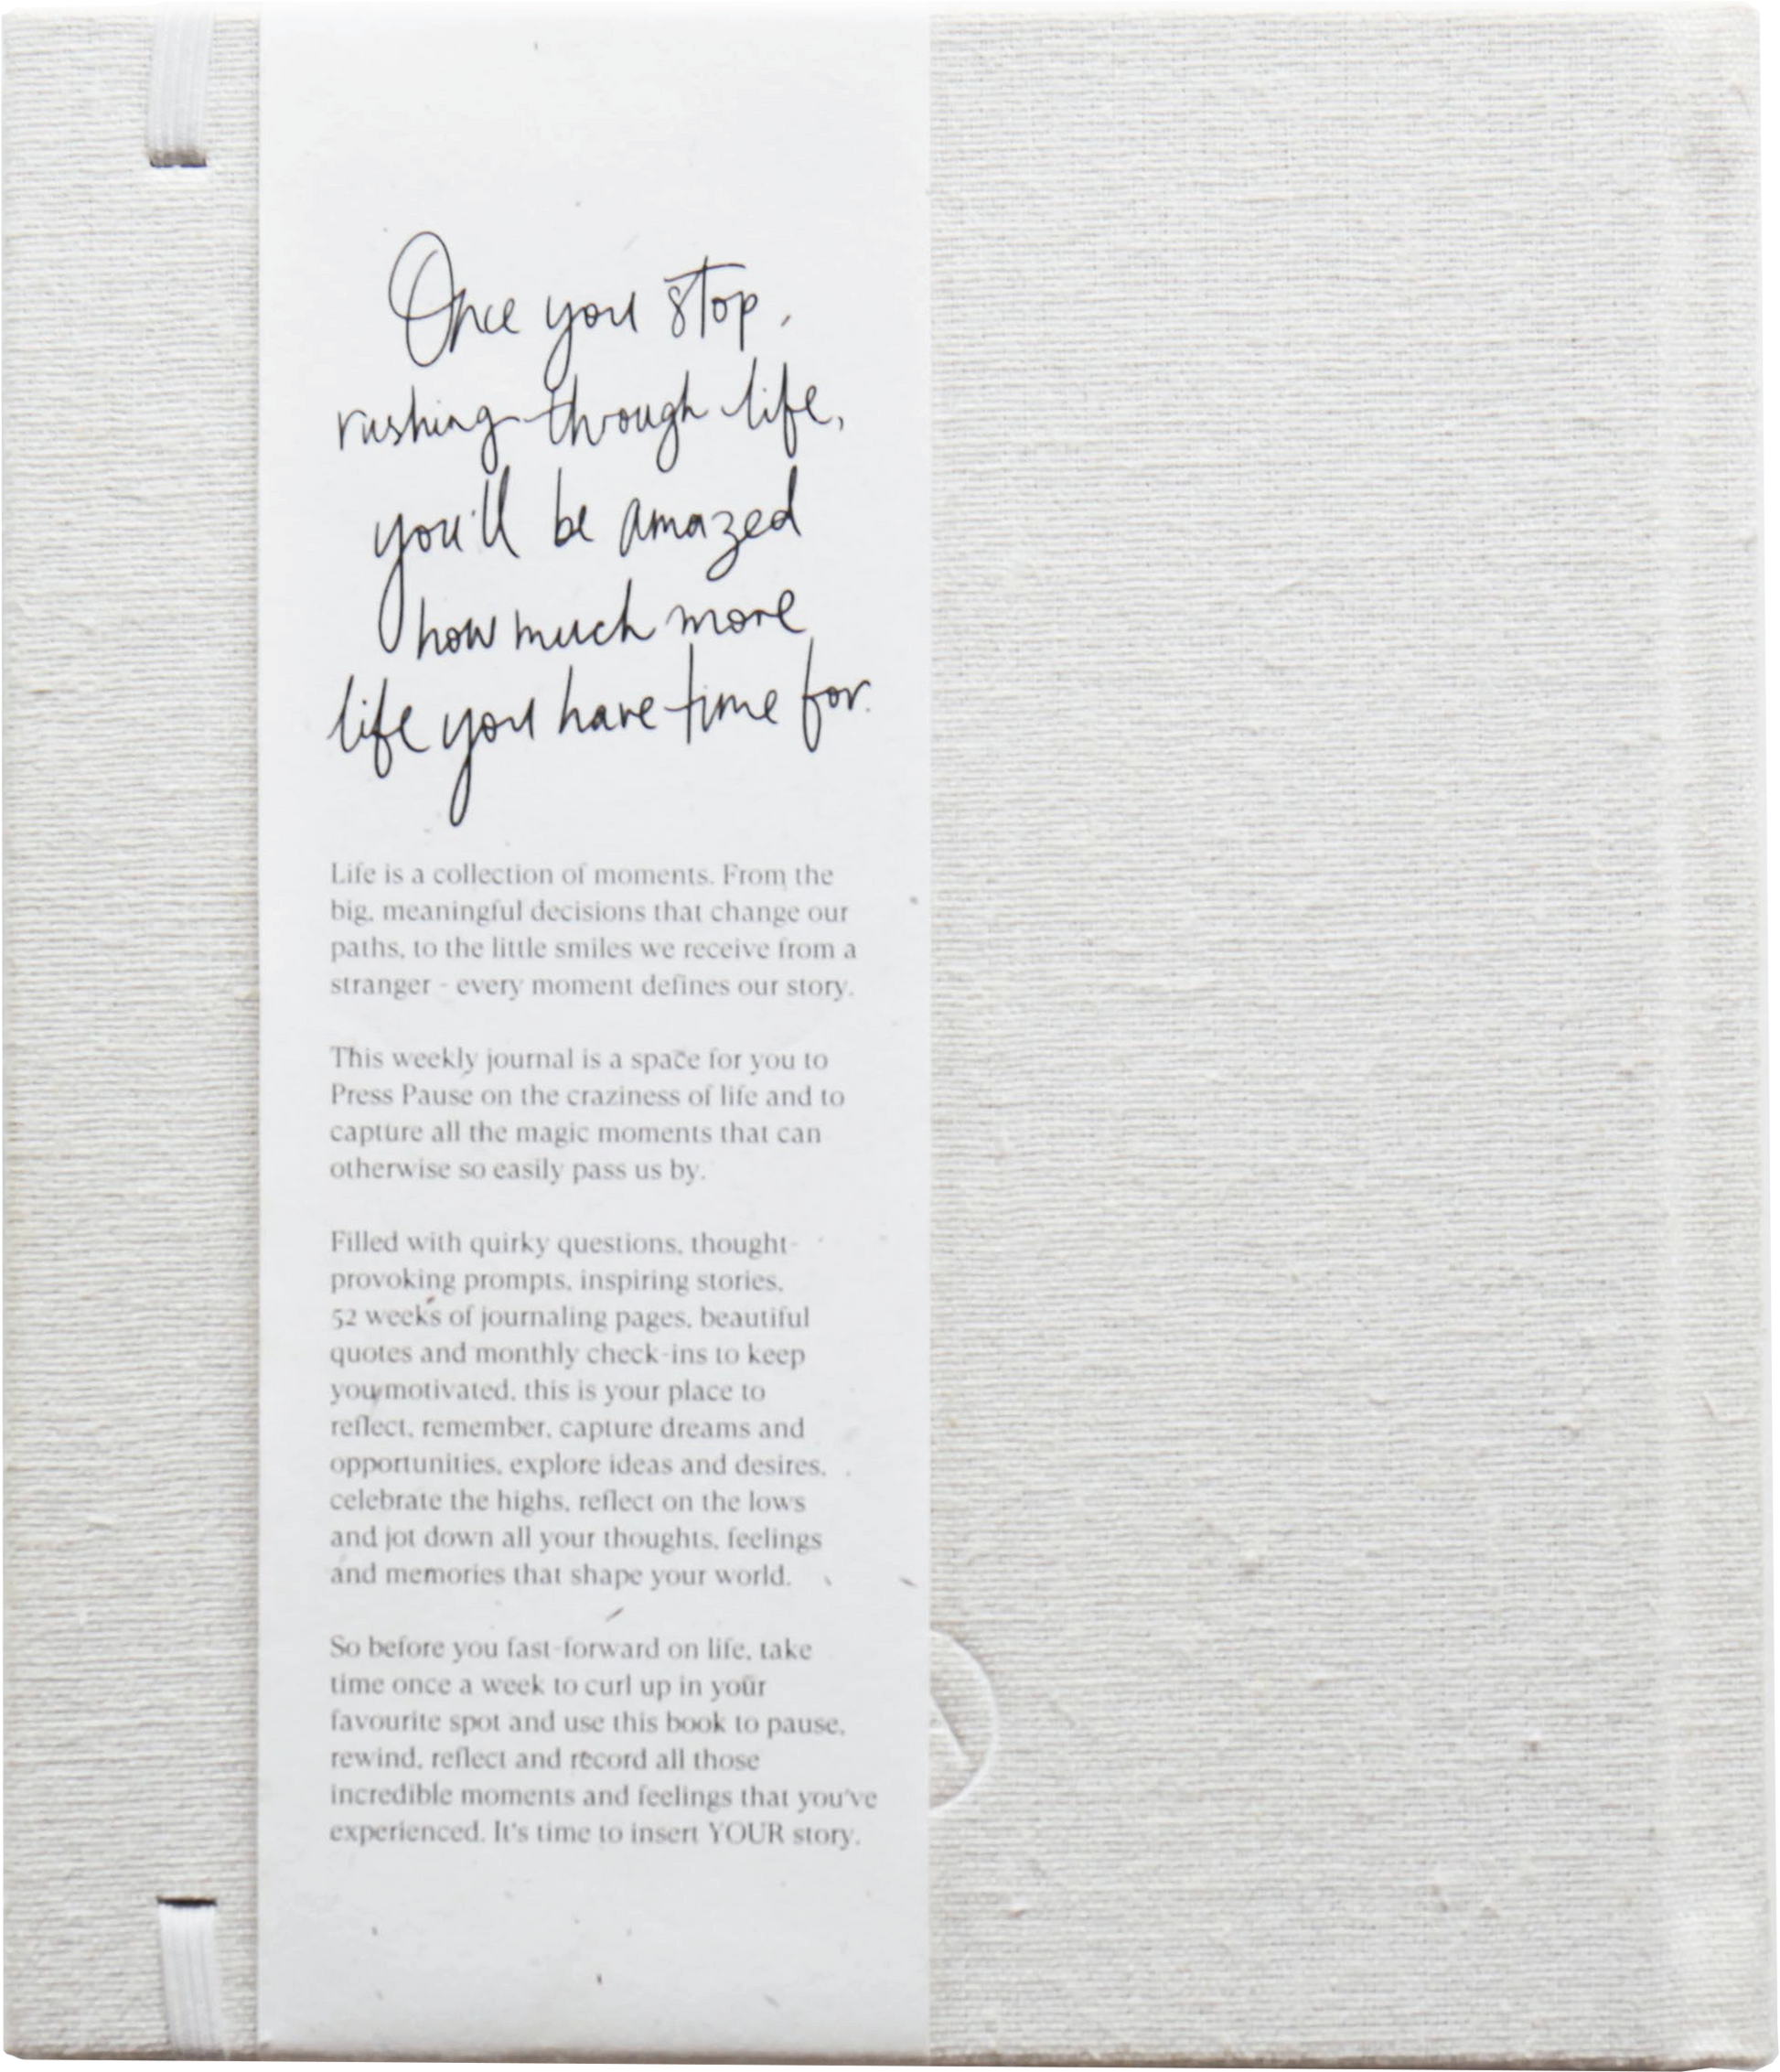 Once you stop
rushing through life,
you'll be amazed
how much more
life you have time for.
Life is a collection of moments. From the
big, meaningful decisions that change our
paths, to the little smiles we receive from a
stranger - every moment defines our story.
This weekly journal is a space for you to
Press Pause on the craziness of life and to
capture all the magic moments that can
otherwise so easily pass us by.
Filled with quirky questions, thought-
provoking prompts, inspiring stories,
52 weeks of journaling pages, beautiful
quotes and monthly check-ins to keep
you motivated, this is your place to
reflect, remember, capture dreams and
opportunities, explore ideas and desires,
celebrate the highs, reflect on the lows
and jot down all your thoughts, feelings
and memories that shape your world.
So before you fast-forward on life, take
time once a week to curl up in your
favourite spot and use this book to pause,
rewind, reflect and record all those
incredible moments and feelings that you've
experienced. It's time to insert YOUR story.